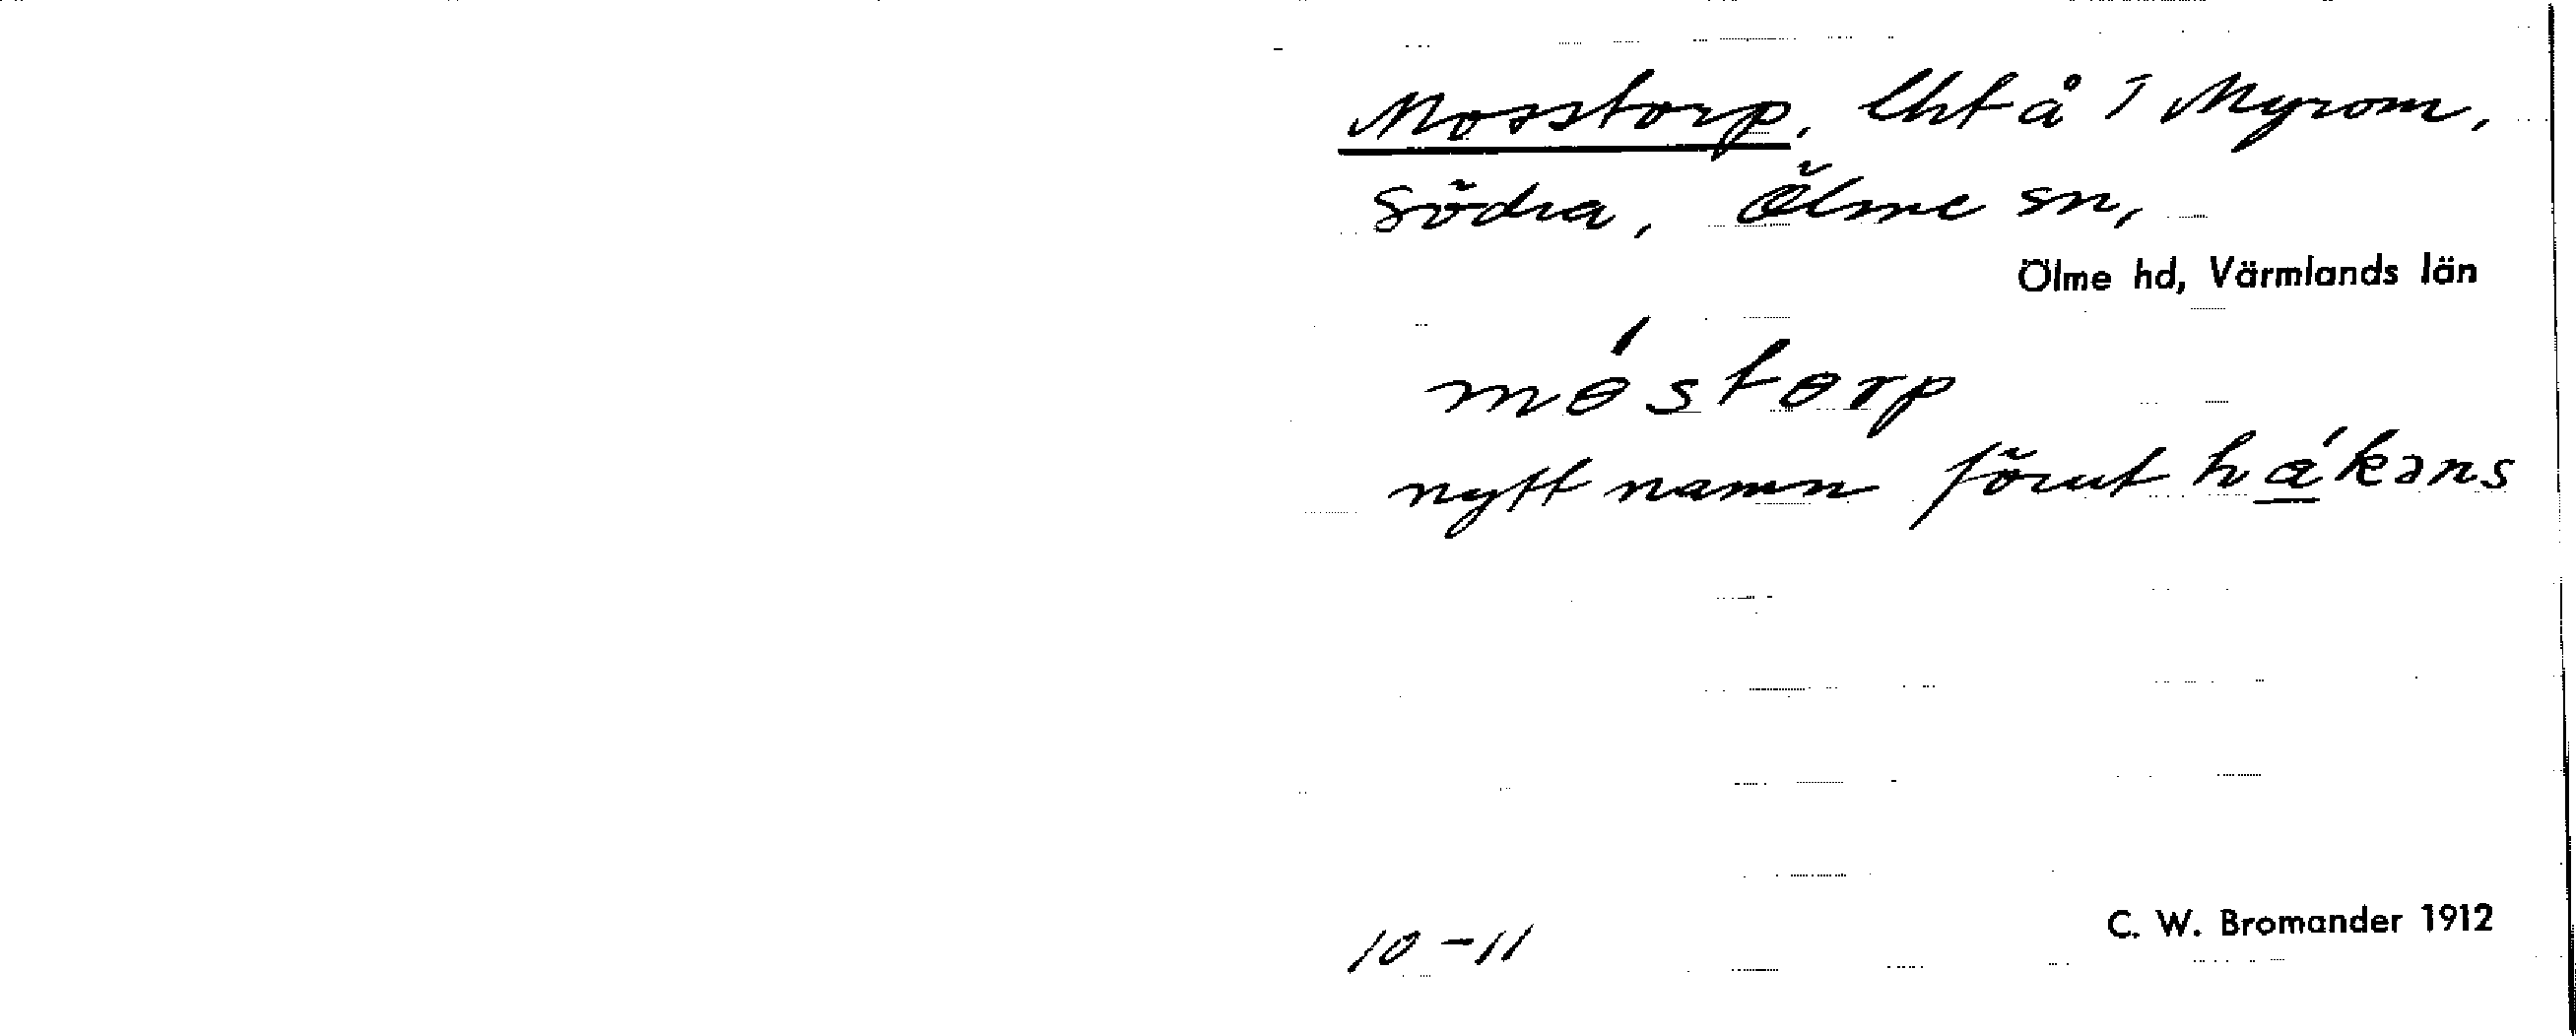 Mosstorp, lht å 1 Myrom,
Södra, Ölme sn,
Ölme hd, Värmlands län
mɵ́stɵrp
nytt namn förut hákans
10-11
C. W. Bromander 1912